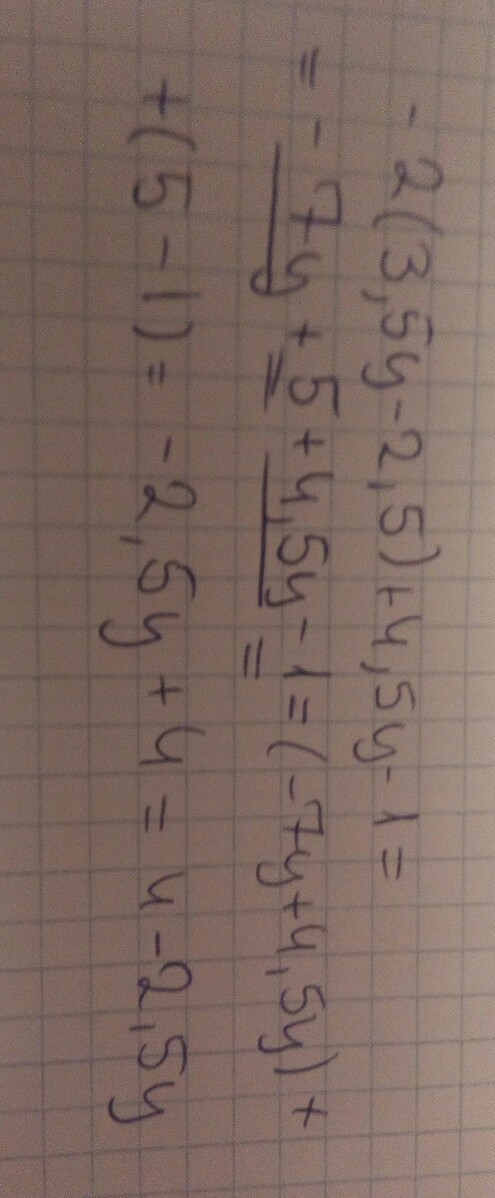 - 2(3,5y-2,5)+4,5y-1=
= - 7y + 5 + 4,5y - 1 = (-7y+4,5y) +
+(5 - 1) = - 2,5y + 4 = 4 - 2,5y